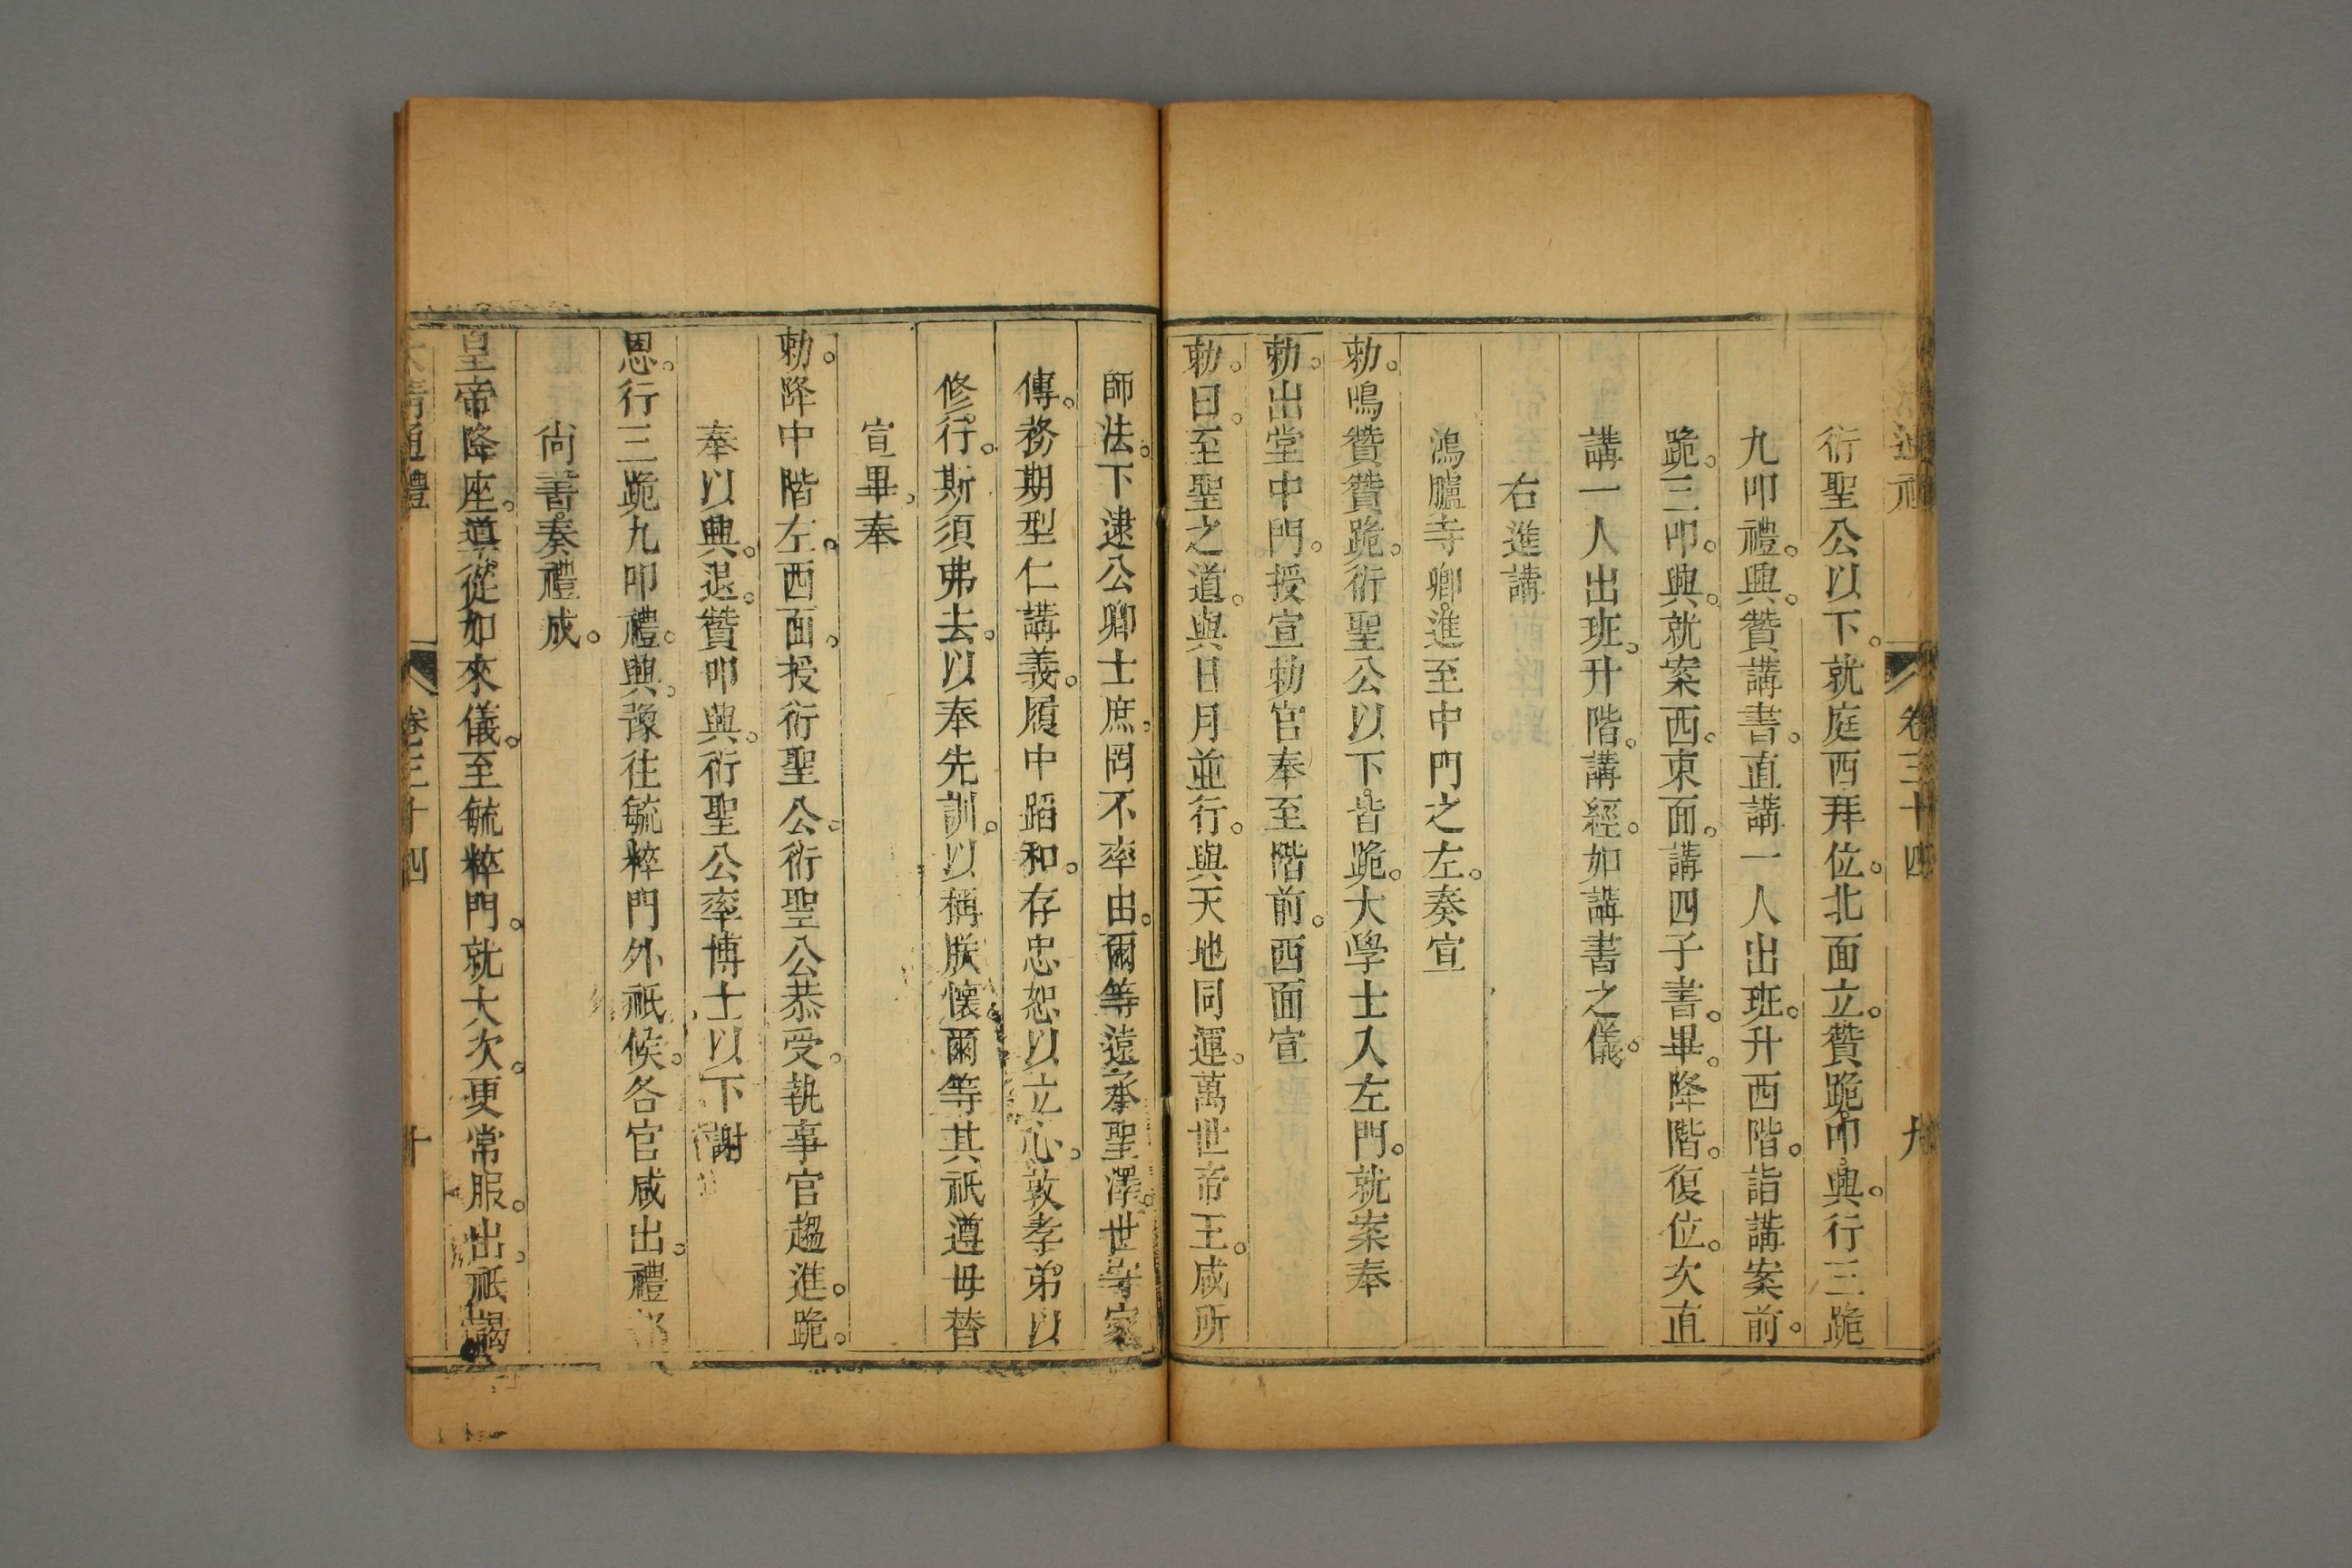 卷三十四
九
衍聖公以下。就庭西拜位。北面立。贊跪。叩。興。行三跪
九叩禮。興。贊講書。直講一人出班。升西階。詣講案前。
跪。三叩。興。就案西。東面。講四子書。畢。降階。復位。次直
講一人出班。升階。講經。如講書之儀。
右進講
鴻臚寺卿。進至中門之左。奏宣
勅。鳴贊贊跪。衍聖公以下。皆跪。大學士入左門。就案奉
勅。出堂中門。授宣勅官奉至階前。西面宣
勅曰。至聖之道。與日月並行。與天地同運。萬世帝王。咸所
師法。下逮公卿士庶。罔不率由。爾等遠承聖澤。世守家
傳。務期型仁講義。履中蹈和。存忠恕以立心。敦孝弟以
修行。斯須弗去。以奉先訓。以稱朕懷。爾等其祇遵毋替
宣畢。奉
勅。降中階左。西面。授衍聖公。衍聖公恭受。執事官趨進。跪。
奉以興。退。贊叩興。衍聖公率博士以下謝
恩。行三跪九叩禮。興。豫往毓粹門外祇候。各官咸出。禮部
尚書。奏禮成。
皇帝降座。導從如來儀。至毓粹門。就大次。更常服。出。祇謁
大清通禮
卷三十四
十